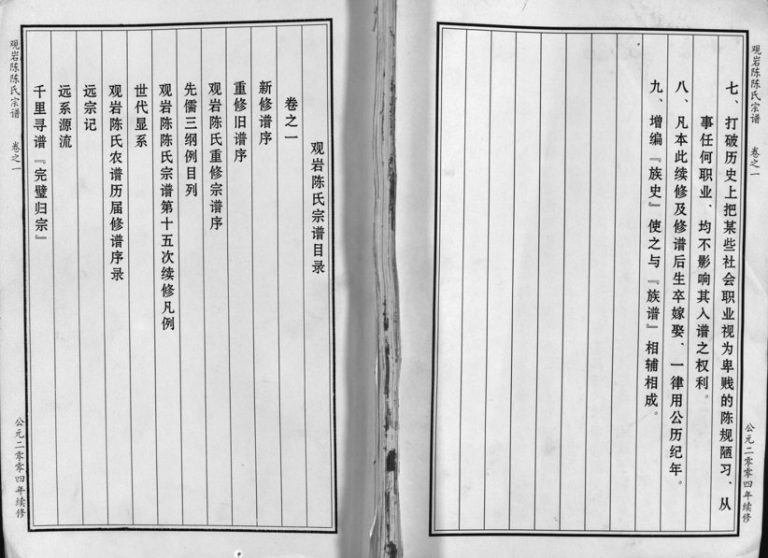 观岩陈陈氏宗谱 卷之一
七、打破历史上把某些社会职业视为卑贱的陈规陋习、从
事任何职业、均不影响其入谱之权利。
八、凡本此续修及修谱后生卒嫁娶、一律用公历纪年。
九、增编『族史』使之与『族谱』相辅相成。
公元二零零四年续修
观岩陈氏宗谱目录
卷之一
新修谱序
重修旧谱序
观岩陈氏重修宗谱序
先儒三纲例目列
观岩陈陈氏宗谱第十五次续修凡例
世代显系
观岩陈氏农谱历届修谱序录
远宗记
远系源流
千里寻谱『完璧归宗』
观岩陈陈氏宗谱 卷之一
公元二零零四年续修